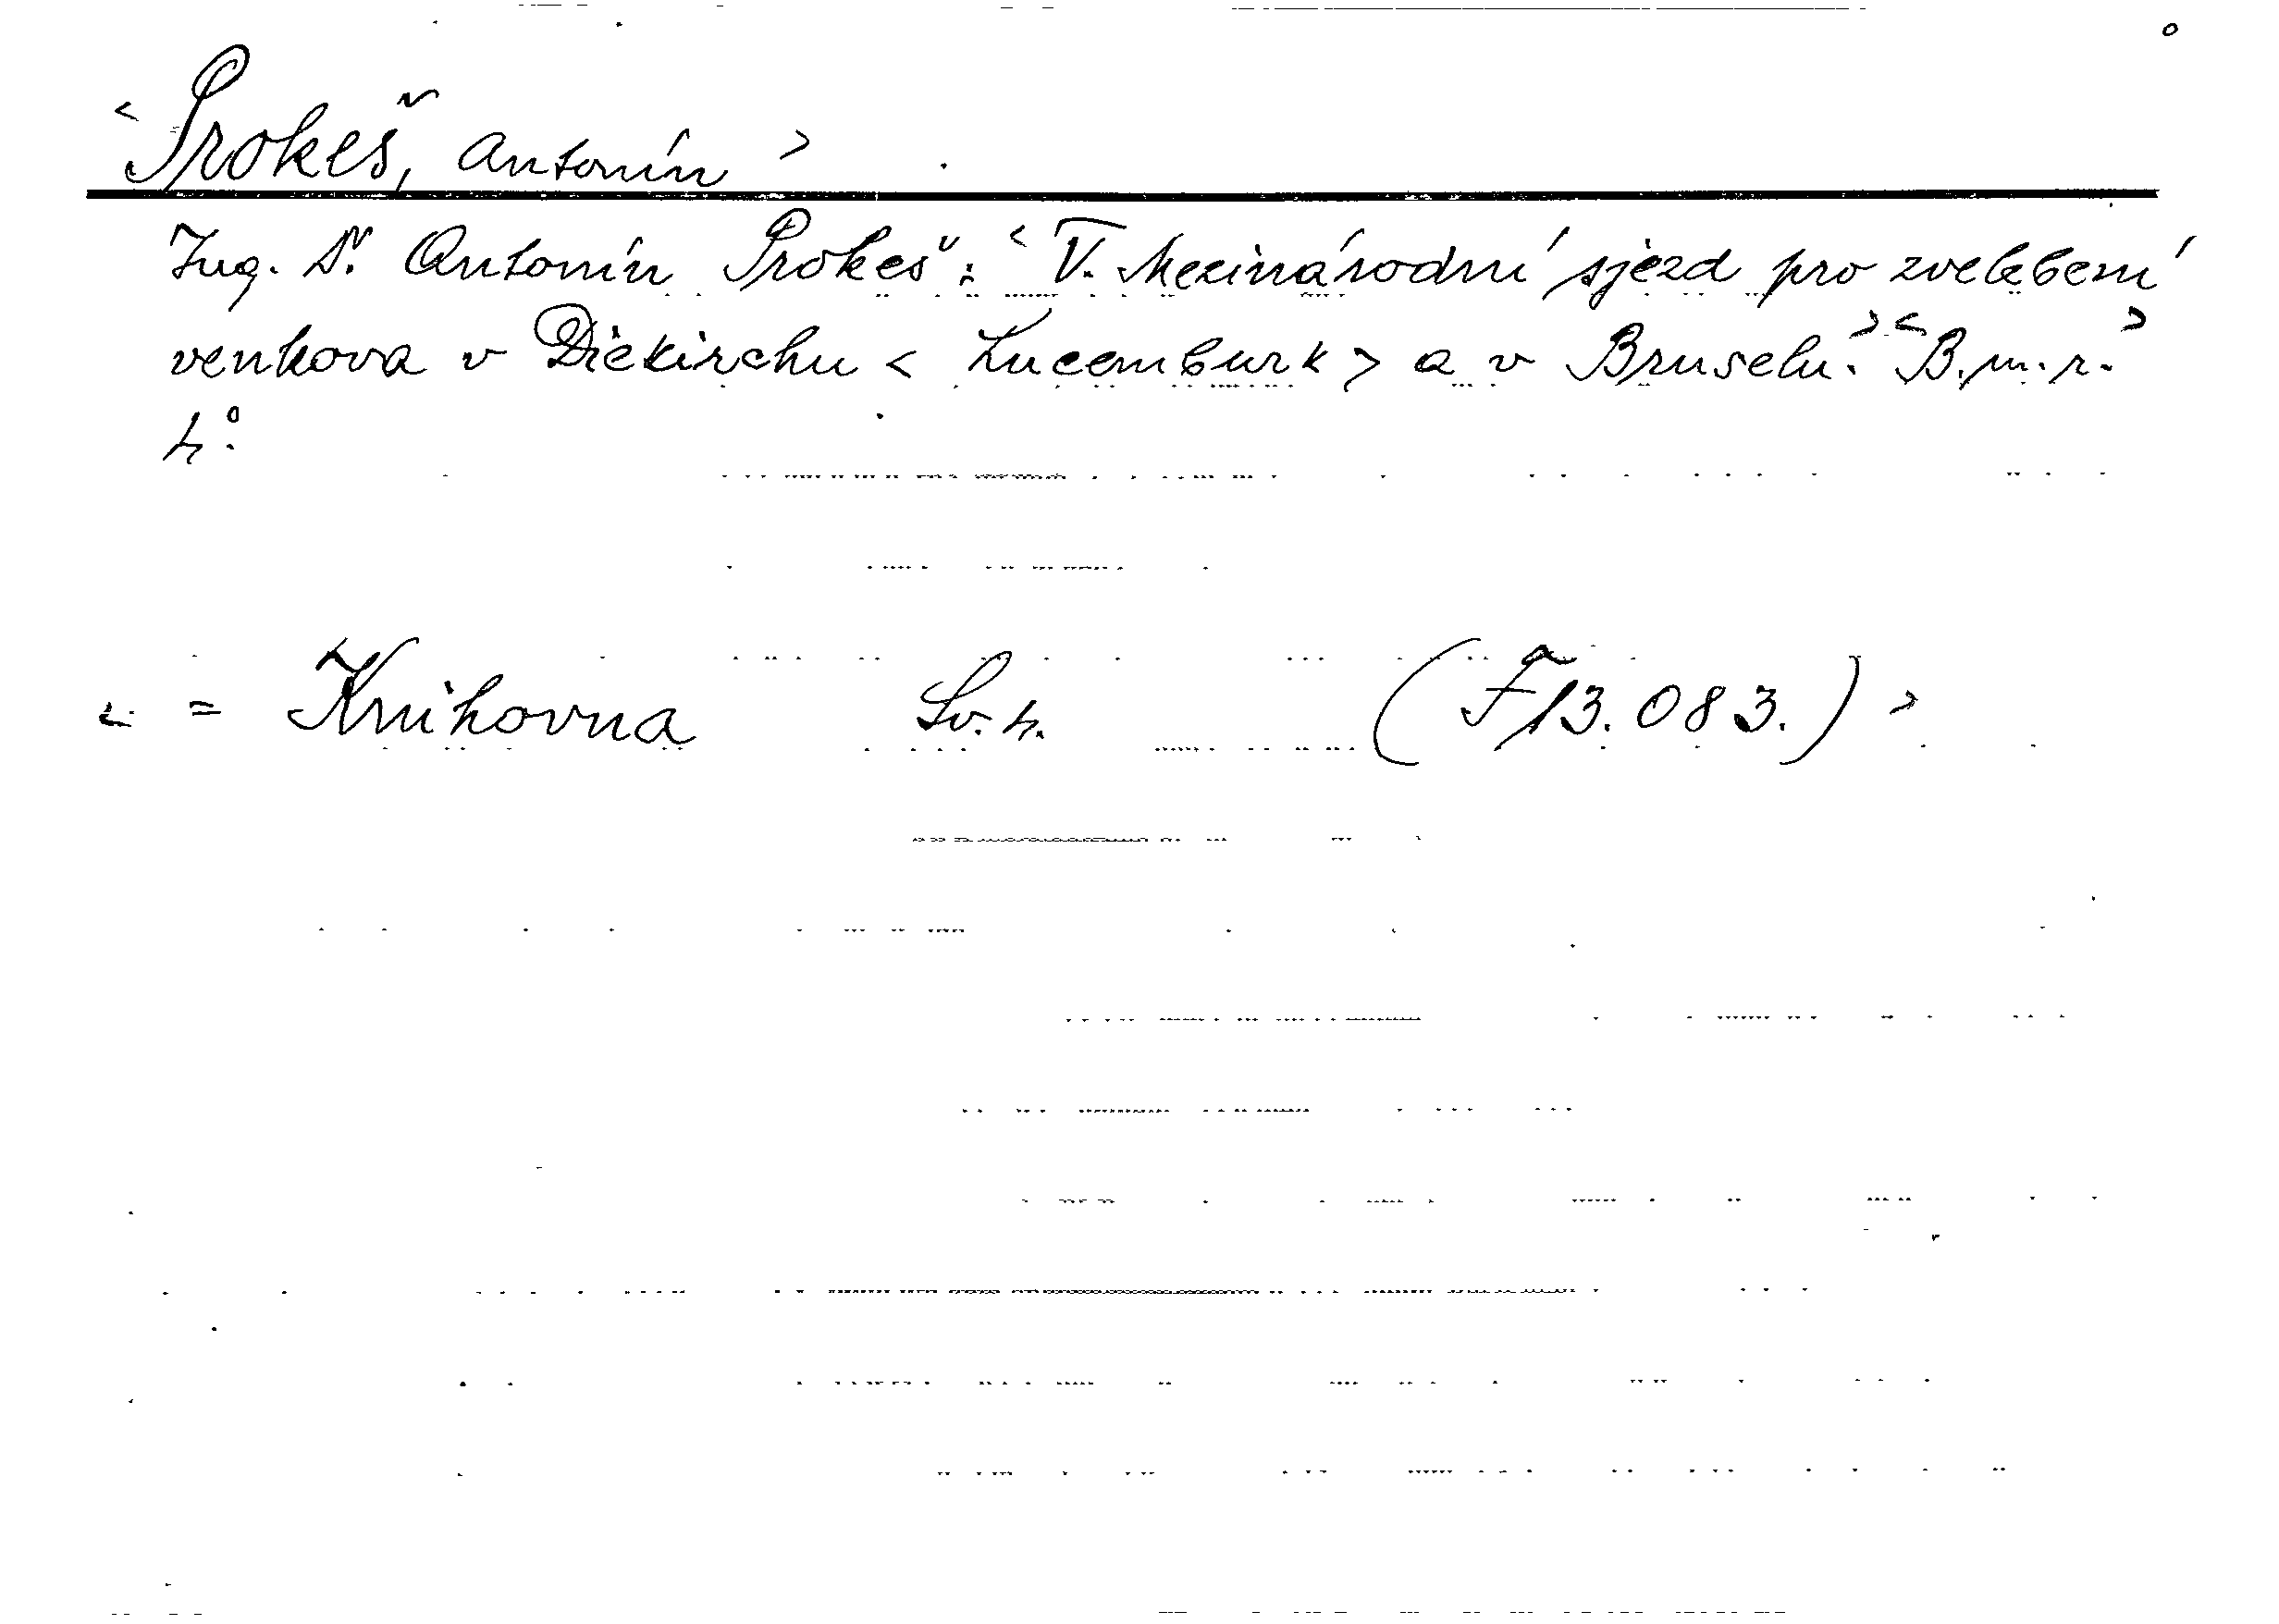 < Prokeš, Antonín >
Ing. Dr. Antonín Prokeš: < V. Mezinárodní sjezd pro zvelebení
venkova v Diekirchu < Lucemburk > a v Bruselu. > < B.m.r. >
4°.
< = Knihovna Sv. 4. (F 13.083.) >